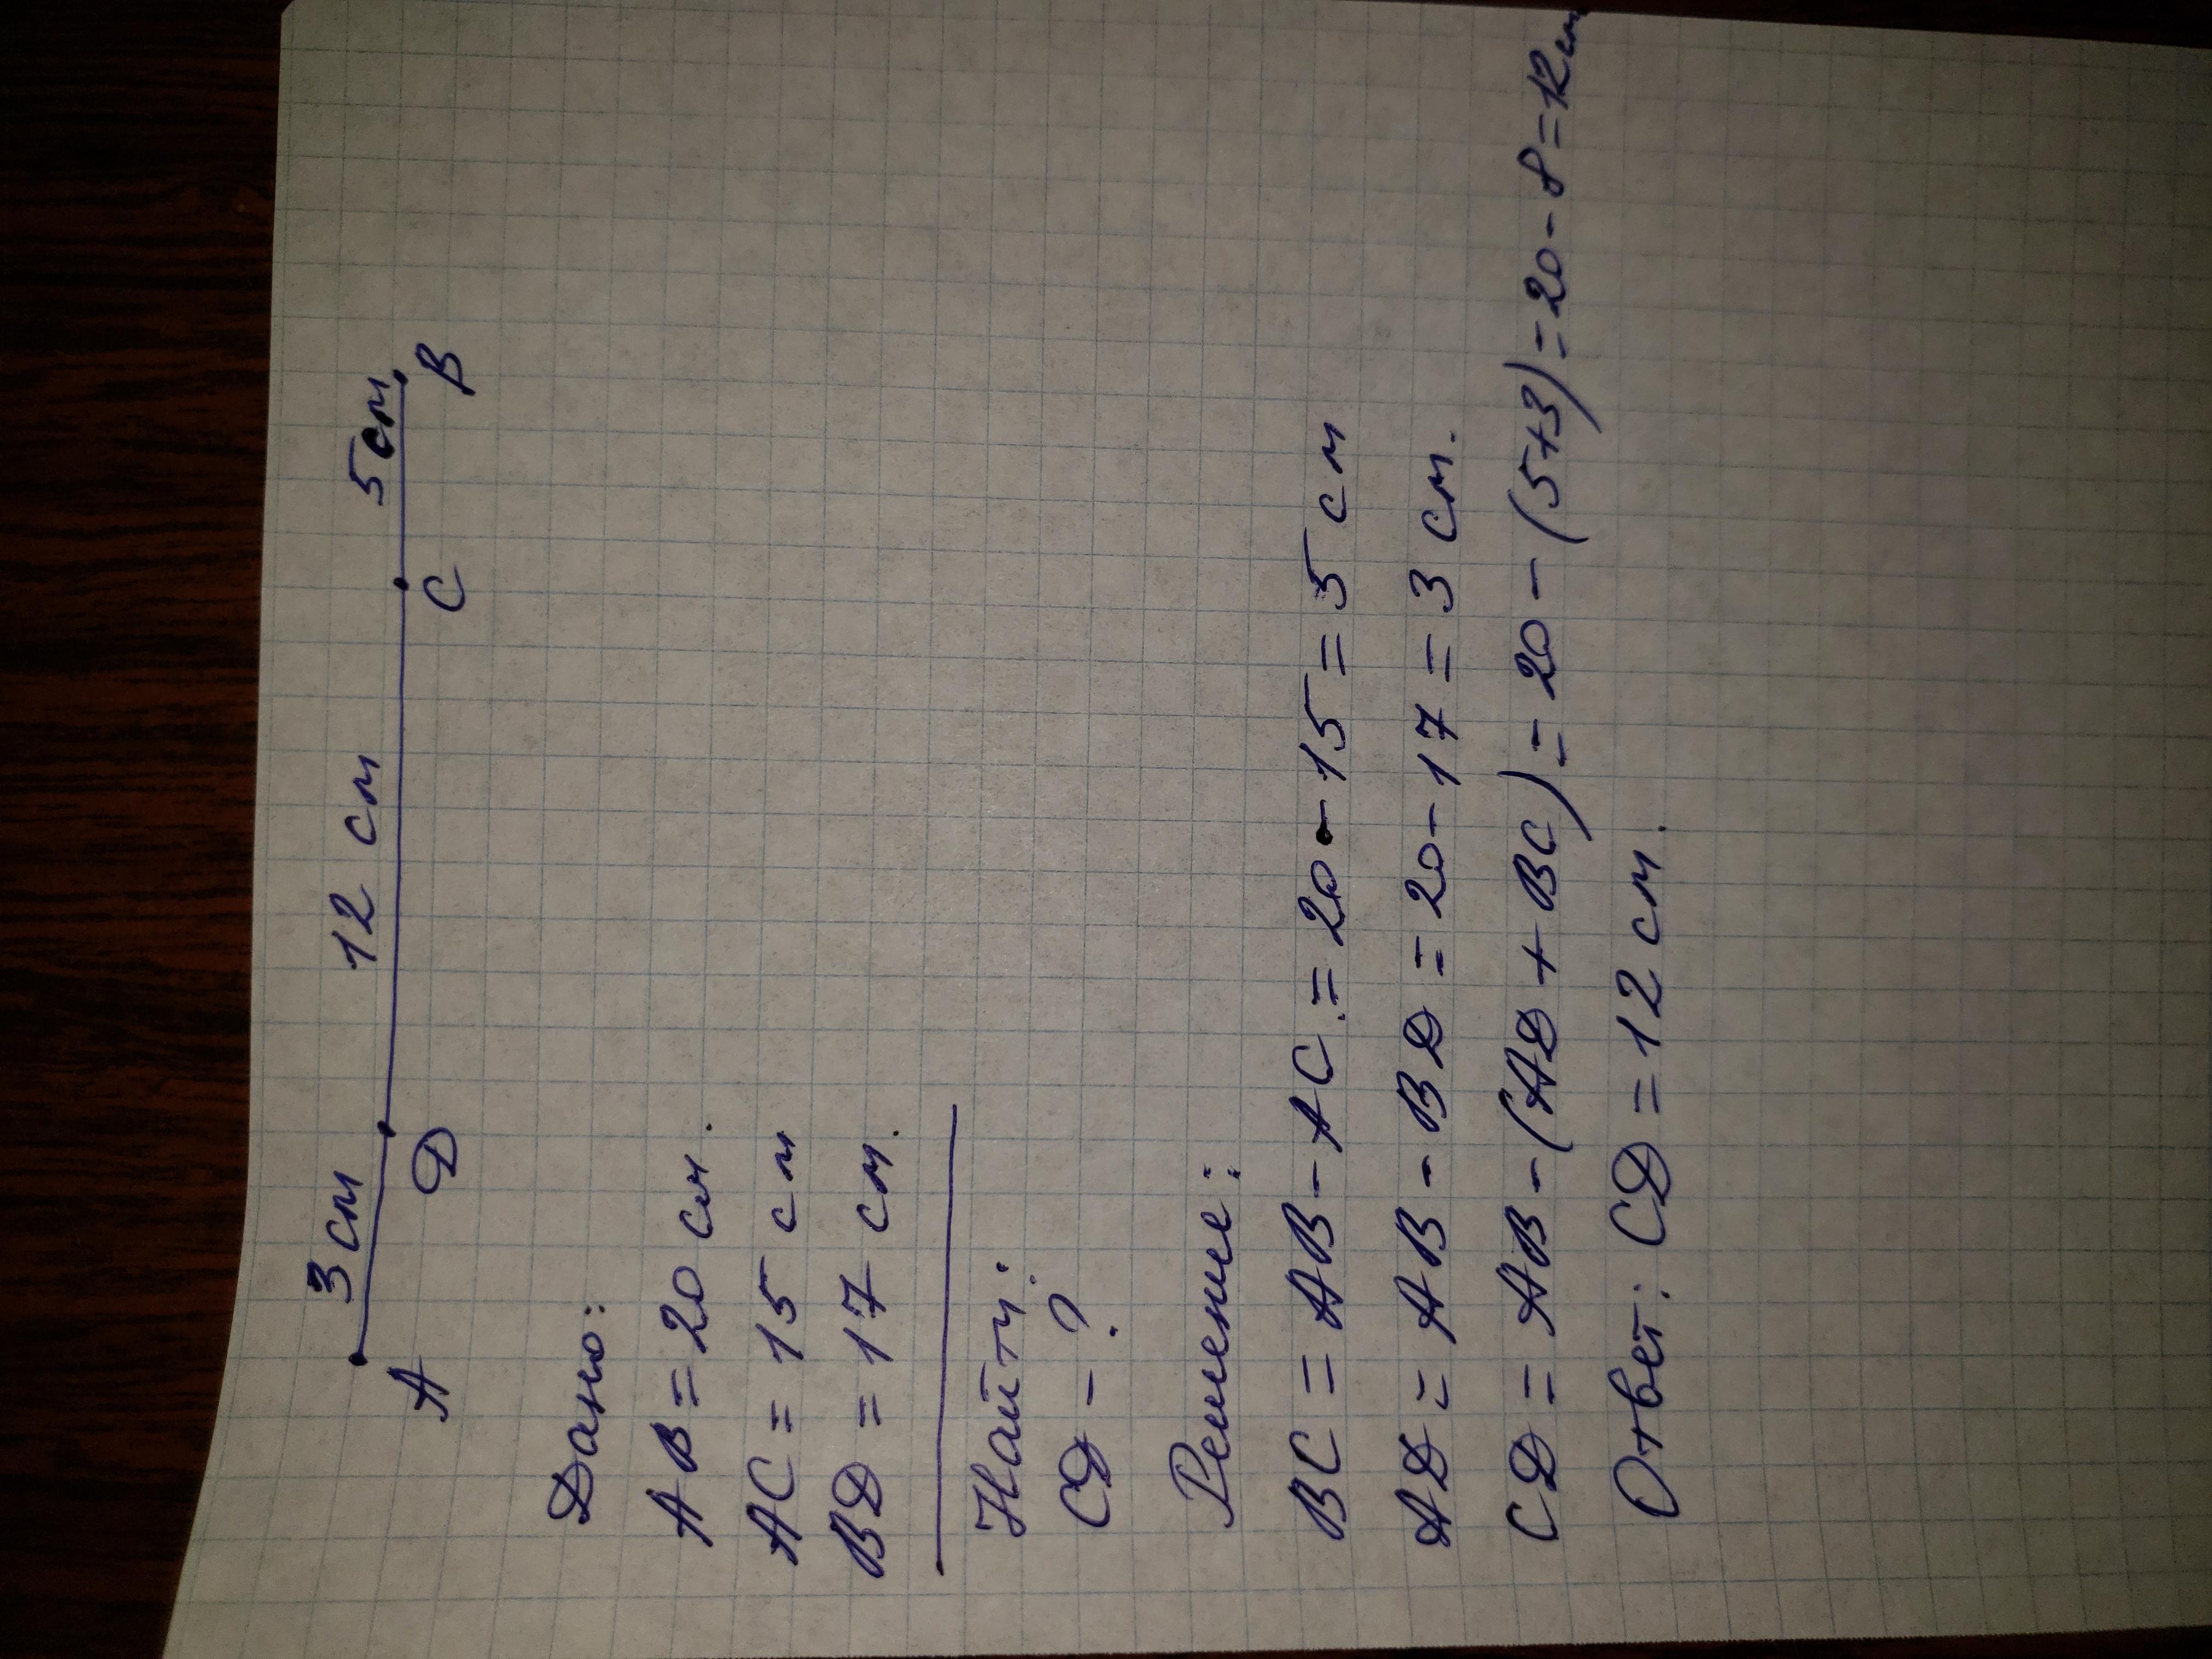 3 см 12 см 5 см
A D C B
Дано:
AB = 20 см.
AC = 15 см
BD = 17 см.
Найти:
CD - ?
Решение:
BC = AB - AC = 20 - 15 = 5 см
AD = AB - BD = 20 - 17 = 3 см.
CD = AB - (AD + BC) = 20 - (5+3) = 20 - 8 = 12 см
Ответ: CD = 12 см.